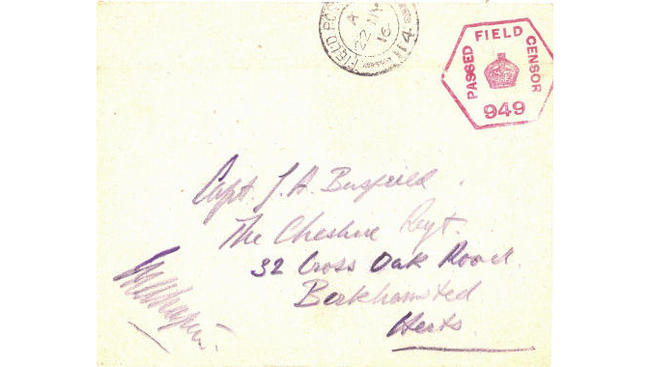 FIELD PO
A
22 MY
16
14
PASSED FIELD CENSOR
949
Capt. J. A. Busfeild.
The Cheshire Regt.
32 Cross Oak Road.
Berkhamsted
Herts.